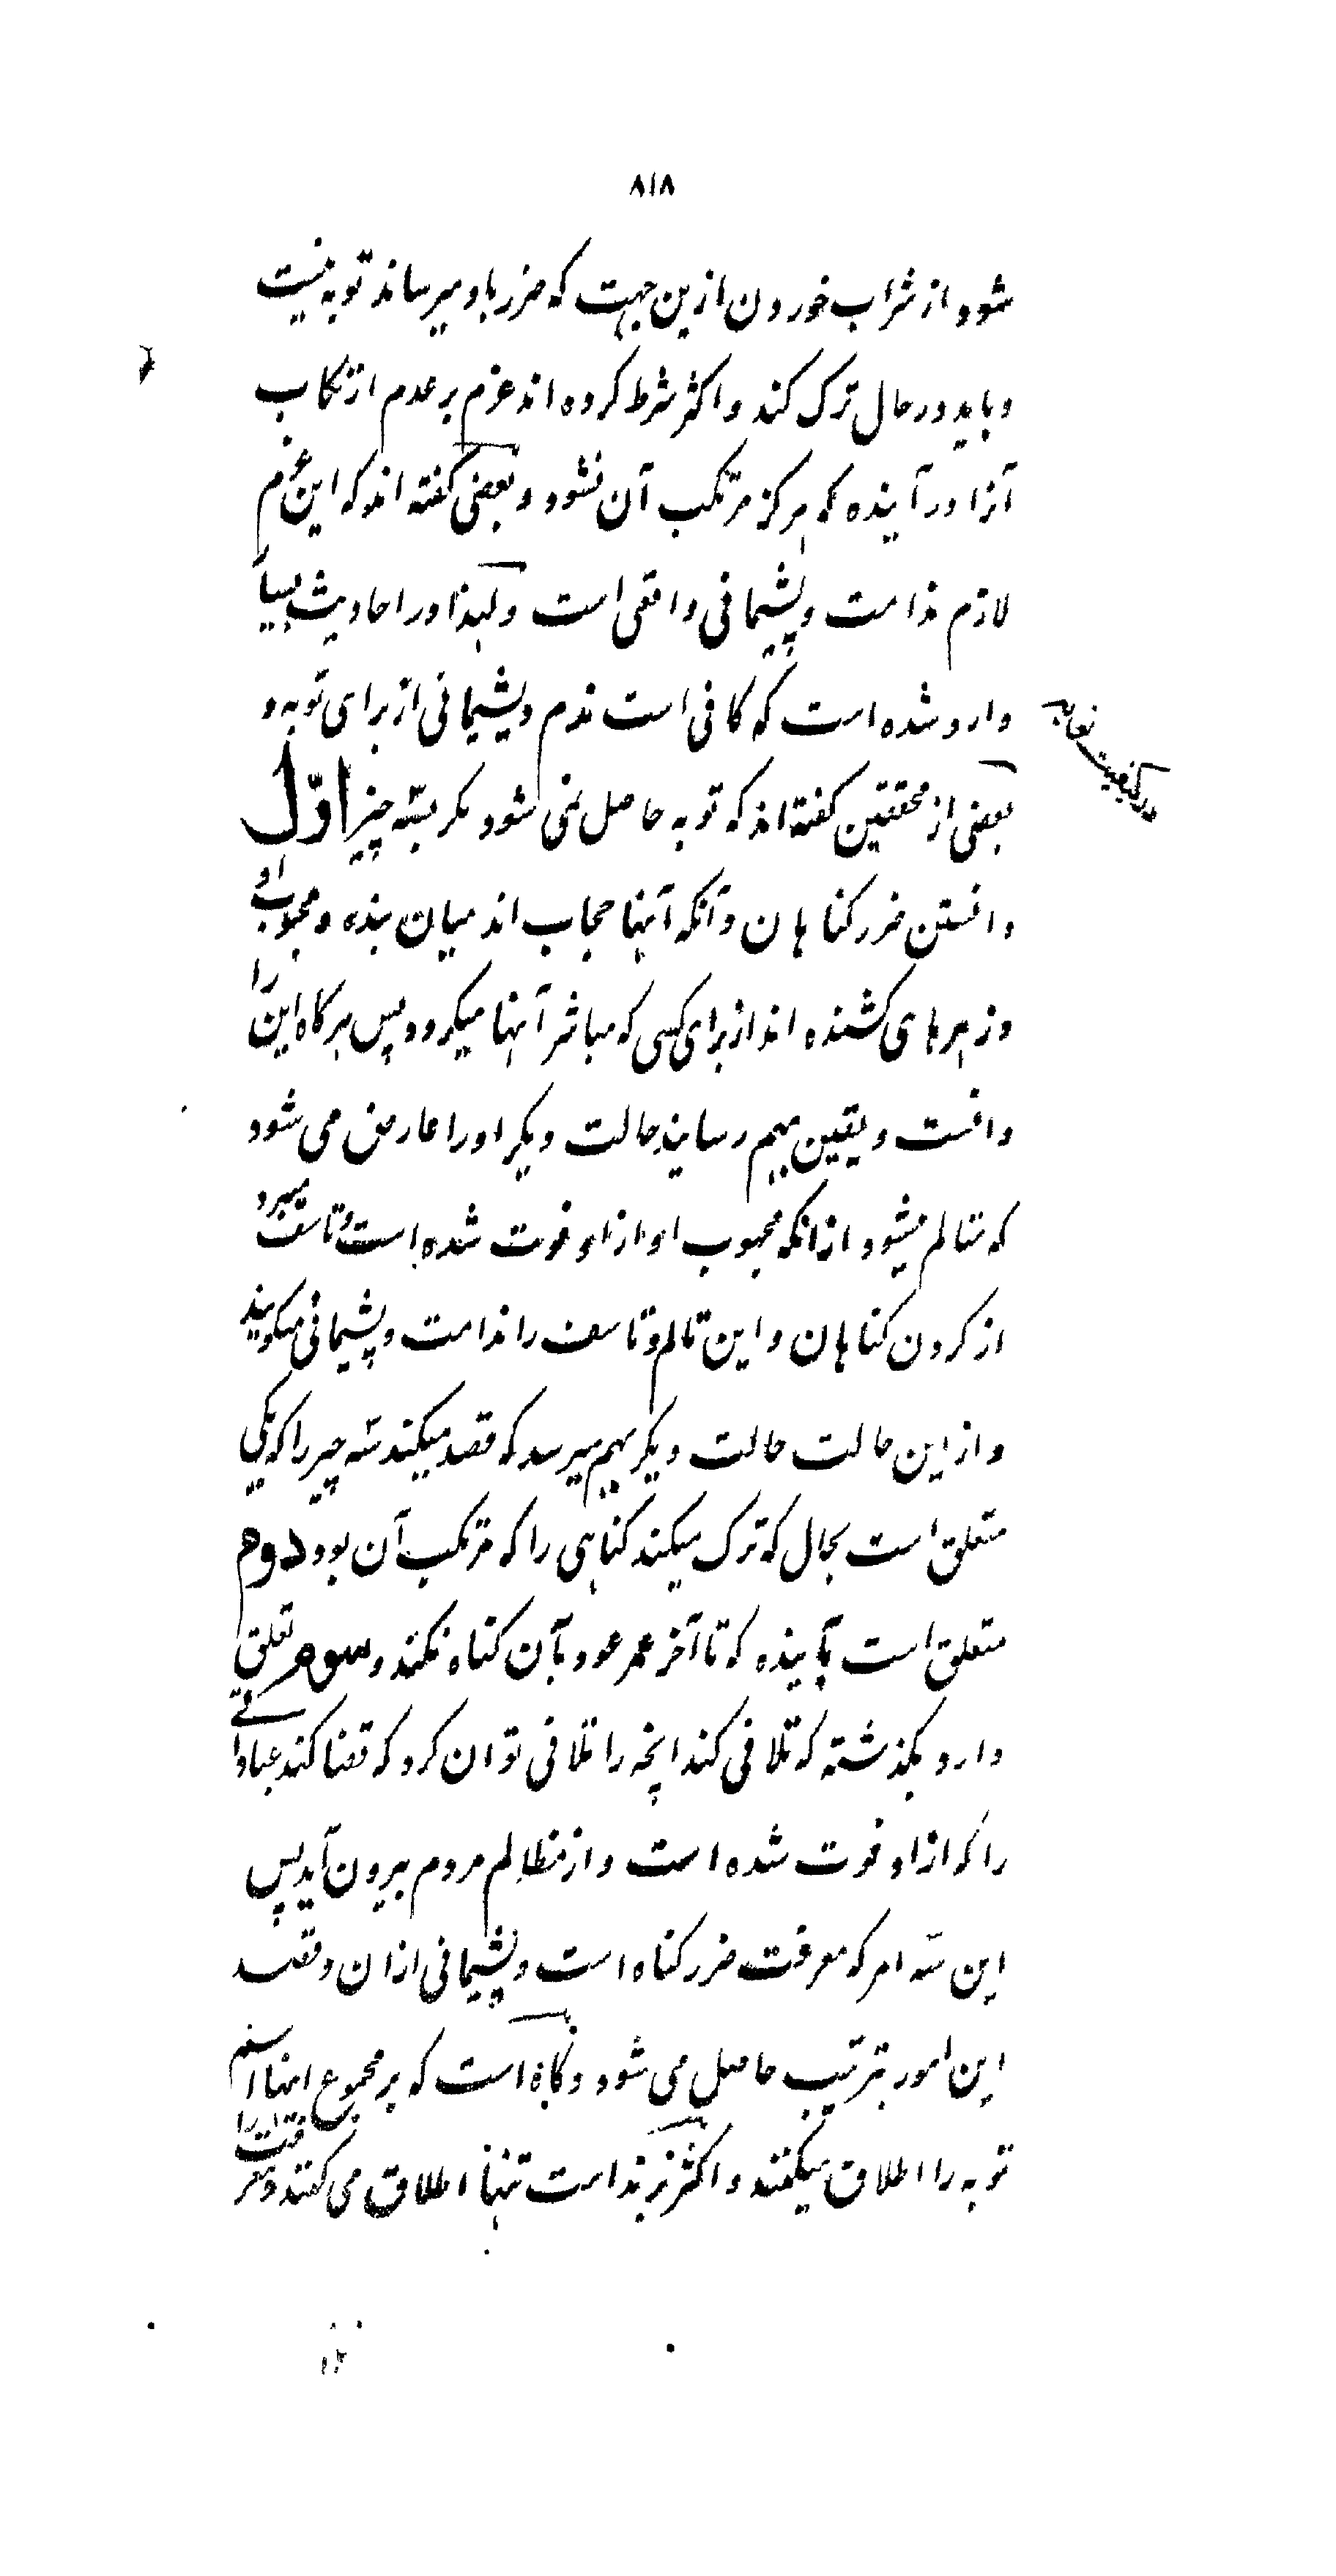 ۸۱۸
شود از شراب خوردن ازین جهت که ضرر باو میرساند توبه نیست
و باید در حال ترک کند و اکثر شرط کرده اند عزم بر عدم ارتکاب
آنرا در آینده که هرگز مرتکب آن نشود و بعضی گفته اند که این عزم
لازم ندامت و پشیمانی واقعی است و لهذا در احادیث بسیار
وارد شده است که کافی است ندم و پشیمانی از برای توبه و
در کیفیت توبه
بعضی از محققین گفته اند که توبه حاصل نمی شود مگر بسّه چیز اوّل
دانستن ضرر گناهان و آنکه آنها حجاب اند میان بنده و محبوب او
و زهرهای کشنده اند از برای کسی که مباشر آنها میگردد پس هرگاه این را
دانست و یقین بهم رساند حالت دیگر او را عارض می شود
که متالم میشود از آنکه محبوب او از او فوت شده است و تاسف میبرد
از کردن گناهان و این تالم و تاسف را ندامت و پشیمانی میگویند
و از این حالت حالت دیگر بهم میرسد که قصد میکند سّه چیز را که یکی
متعلق است بحال که ترک میکند گناهی را که مرتکب آن بود دوم
متعلق است بآینده که تا آخر عمر عود بآن گناه نکند و سوم تعلق
دارد بگذشته که تلافی کند آنچه را تلافی توان کرد که قضا کند عباداتی
را که از او فوت شده است و از مظالم مردم بیرون آید پس
این سّه امر که معرفت ضرر گناه است و پشیمانی از ان و قصد
این امور بترتیب حاصل می شود و گاه است که بر مجموع اینها اسم
توبه را اطلاق میکنند و اکثر بر ندامت تنها اطلاق می کنند و معرفت را